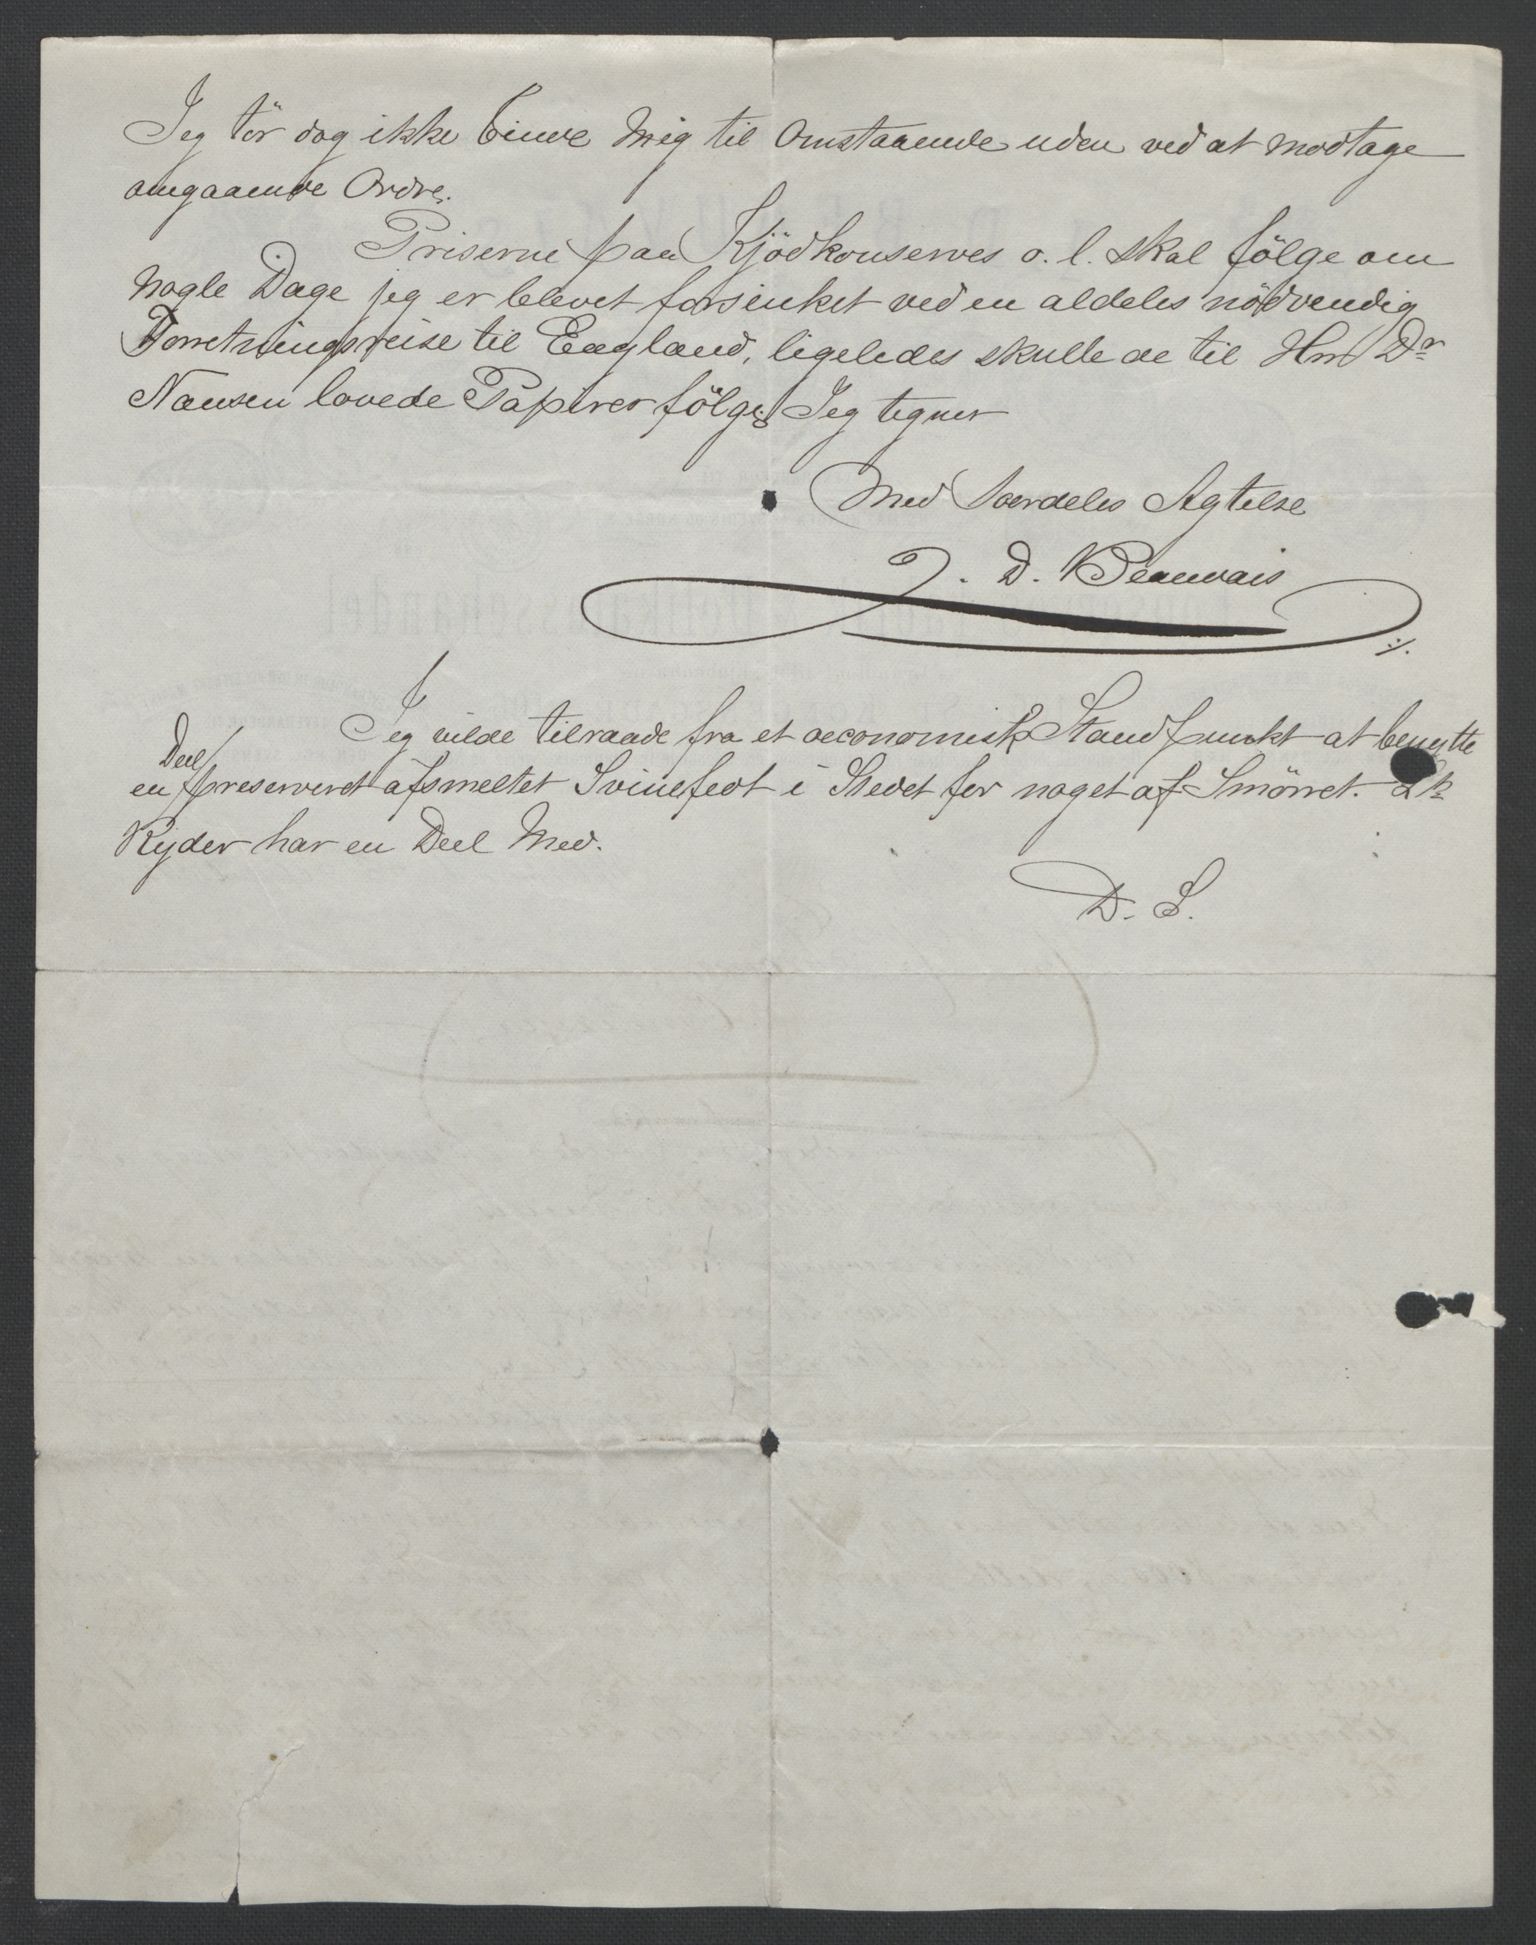 Jeg tör dog ikke binde mig til Omstaaende uden ved at modtage
omgaaende Ordre.
Priserne paa Kjödkonserves o. l. skal fölge om
nogle Dage jeg er blevet forsinket ved en aldeles nödvendig
Forretningsreise til England, ligeledes skulle de til Hrr Dr
Nansen lovede Papirer fölge. Jeg tegner
Med Særdeles Agtelse
D. Beauvais
Jeg vilde tilraade fra et oeconomisk Standpunkt at benytte
en Deel preserveret afsmeltet Svinefedt i Stedet for noget af Smörret. Lt
Ryder har en Deel Med.
D. S.